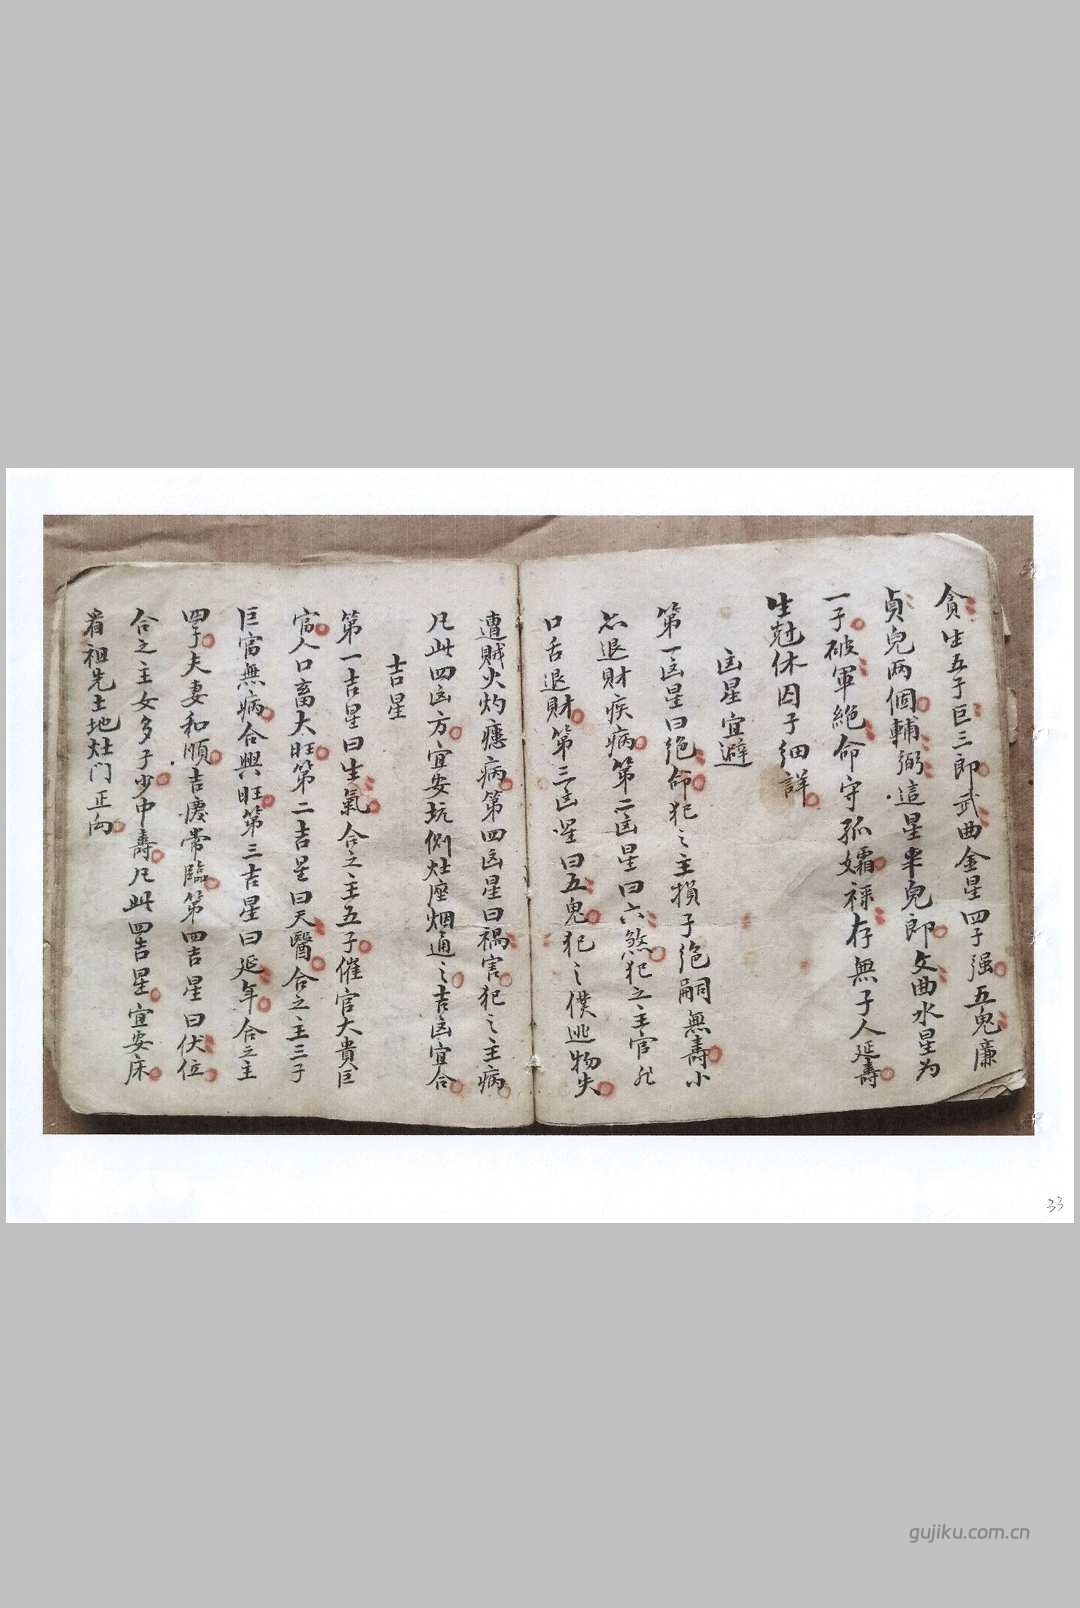 貪生五子巨三郎武曲金星四子强五鬼廉
貞兒两個輔弼這星半兒郎文曲水星为
一子破軍絕命守孤孀祿存無子人延壽
生尅休囚子细詳
凶星宜避
第一凶星曰絕命犯之主損子绝嗣無壽小
退財疾病第二凶星曰六煞犯之主官非
口舌退財第三凶星曰五鬼犯之僕逃物失
遭賊火灼病第四凶星曰禍害犯之主病
凡此四凶方宜安坑厠灶座烟通之吉凶宜合
吉星
第一吉星曰生氣合之主五子催官大貴巨
富人口畜大旺第二吉星曰天醫合之主三子
巨富無病合興旺第三吉星曰延年合之主
四子夫妻和順吉慶常臨第四吉星曰伏位
合之主女多子少中壽凡此四吉星宜安床
看祖先土地灶门正向
33
gujiku.com.cn